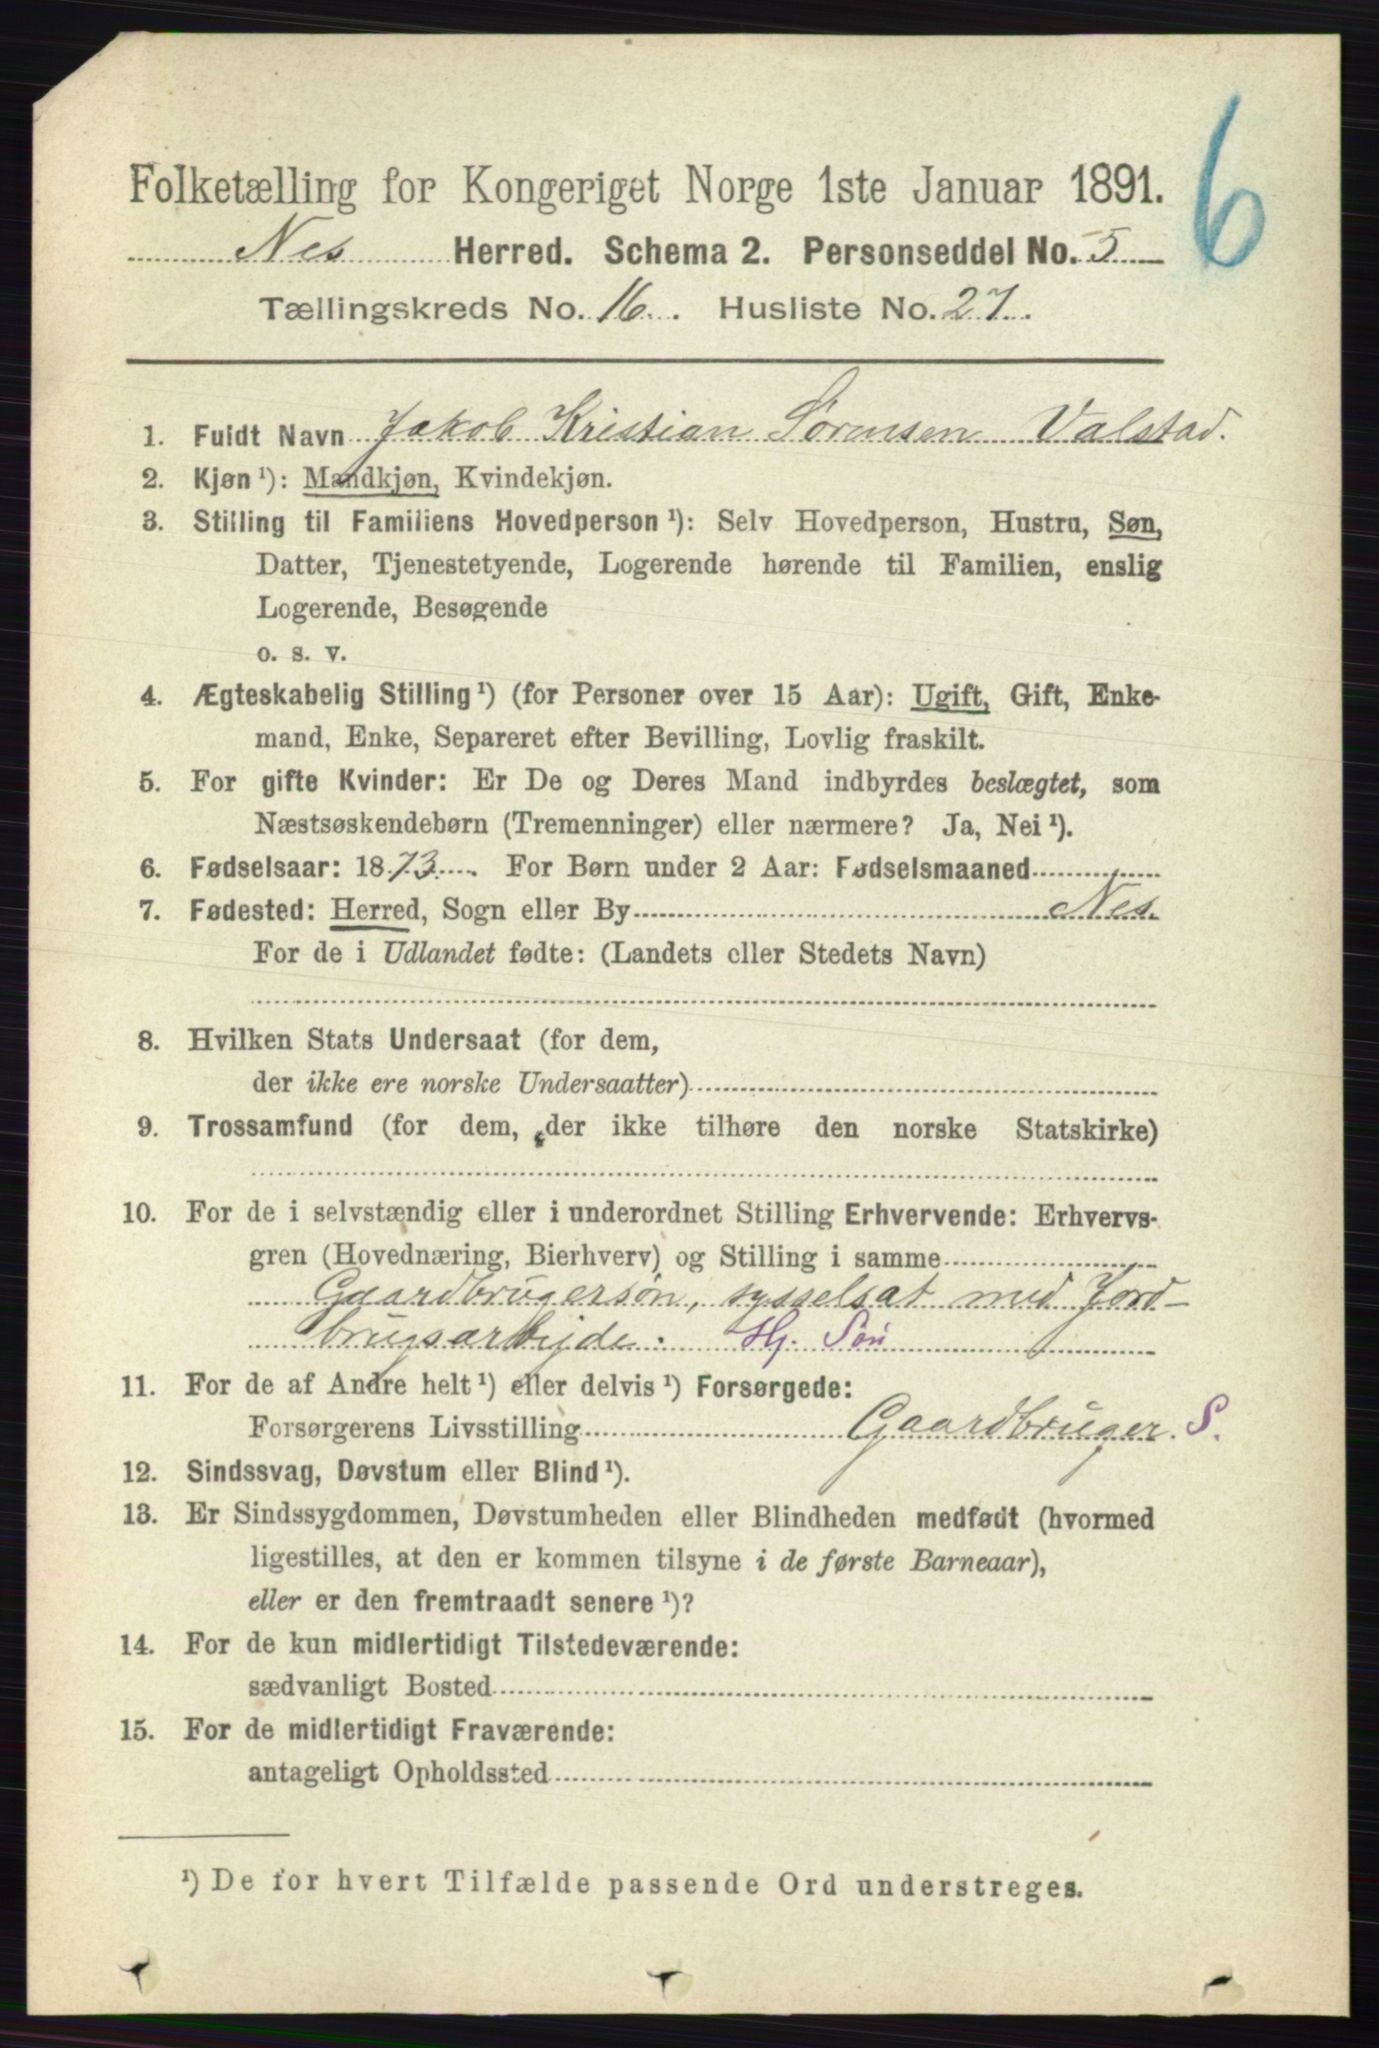 6
Folketælling for Kongeriget Norge 1ste Januar 1891.
Nes Herred. Schema 2. Personseddel No. 5
Tællingskreds No. 16. Husliste No. 27.
1. Fuldt Navn Jakob Kristian Sørensen Valstad.
2. Kjøn ¹): Mandkjøn, Kvindekjøn.
3. Stilling til Familiens Hovedperson ¹): Selv Hovedperson, Hustru, Søn,
Datter, Tjenestetyende, Logerende hørende til Familien, enslig
Logerende, Besøgende
o. s. v.
4. Ægteskabelig Stilling ¹) (for Personer over 15 Aar): Ugift, Gift, Enke-
mand, Enke, Separeret efter Bevilling, Lovlig fraskilt.
5. For gifte Kvinder: Er De og Deres Mand indbyrdes beslægtet, som
Næstsøskendebørn (Tremenninger) eller nærmere? Ja, Nei ¹).
6. Fødselsaar: 1873. For Børn under 2 Aar: Fødselsmaaned
7. Fødested: Herred, Sogn eller By Nes.
For de i Udlandet fødte: (Landets eller Stedets Navn)
8. Hvilken Stats Undersaat (for dem,
der ikke ere norske Undersaatter)
9. Trossamfund (for dem, der ikke tilhøre den norske Statskirke)
10. For de i selvstændig eller i underordnet Stilling Erhvervende: Erhvervs-
gren (Hovednæring, Bierhverv) og Stilling i samme
Gaardbrugersøn, sysselsat med Jord-
brugsarbejde. Hj. Søn
11. For de af Andre helt ¹) eller delvis ¹) Forsørgede:
Forsørgerens Livsstilling Gaardbruger. S.
12. Sindssvag, Døvstum eller Blind ¹).
13. Er Sindssygdommen, Døvstumheden eller Blindheden medfødt (hvormed
ligestilles, at den er kommen tilsyne i de første Barneaar),
eller er den fremtraadt senere ¹)?
14. For de kun midlertidigt Tilstedeværende:
sædvanligt Bosted
15. For de midlertidigt Fraværende:
antageligt Opholdssted
¹) De for hvert Tilfælde passende Ord understreges.